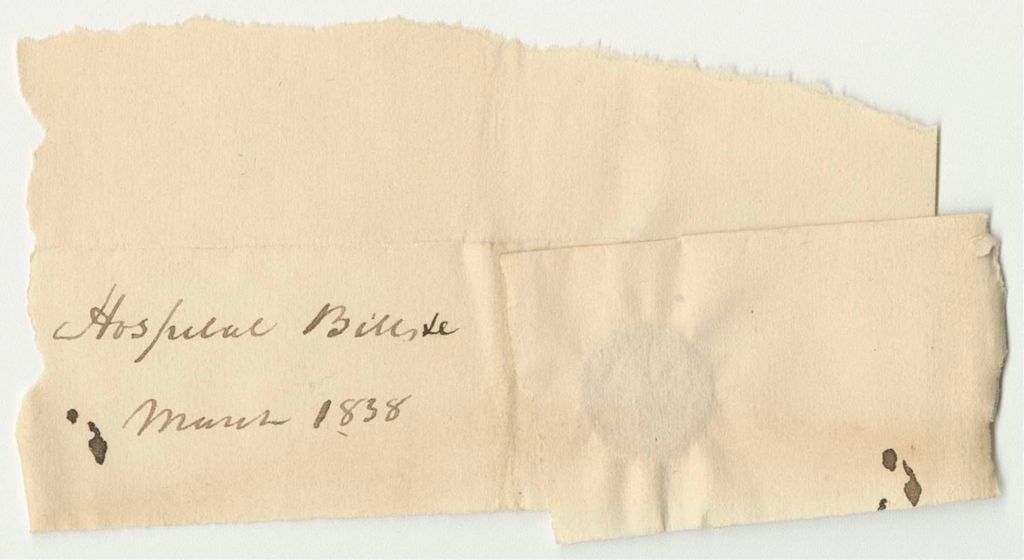 Hospital Bills, &c
March 1838